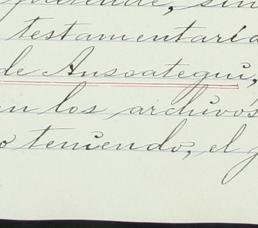 testamentaría
de Ansoategui,
en los archivos
teniendo, el